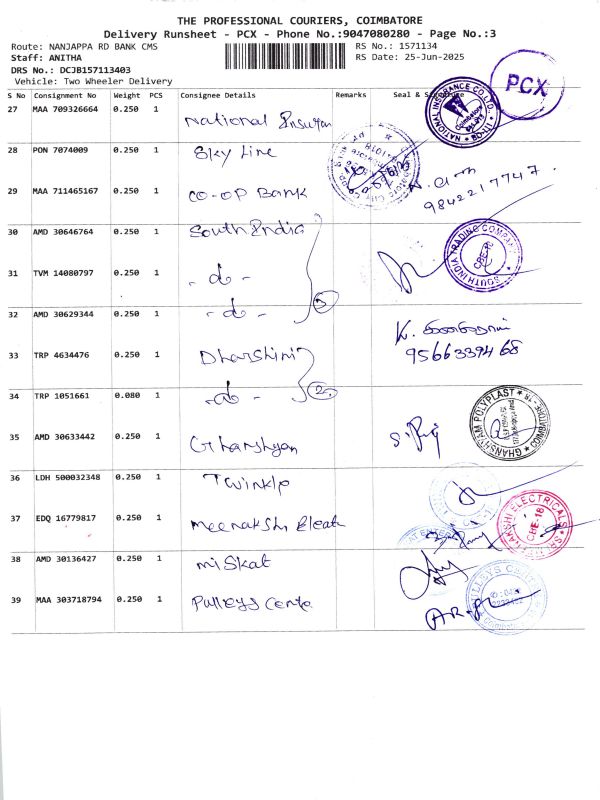 THE PROFESSIONAL COURIERS, COIMBATORE
Delivery Runsheet - PCX - Phone No.:9047080280 - Page No.:3
Route: NANJAPPA RD BANK CMS
RS No.: 1571134
Staff: ANITHA
RS Date: 25-Jun-2025
DRS No.: DCJB157113403
Vehicle: Two Wheeler Delivery
PCX
S No Consignment No Weight PCS Consignee Details Remarks Seal & Signature
27 MAA 709326664 0.250 1 National Insuran
NATIONAL INSURANCE CO.LTD.
Coimbatore
28 PON 7074009 0.250 1 Sky Line
29 MAA 711465167 0.250 1 CO-OP Bank
9842217747.
30 AMD 30646764 0.250 1 South India
SOUTH INDIA TRADING COMPANY
31 TVM 14080797 0.250 1 -do-
32 AMD 30629344 0.250 1 -do-
3
33 TRP 4634476 0.250 1 Dharshini
9566339468
34 TRP 1051661 0.080 1 -do-
2
35 AMD 30633442 0.250 1 Ghanshyam
GHANSHYAM POLYPLAST
COIMBATORE - 18
36 LDH 500032348 0.250 1 Twinkle
37 EDQ 16779817 0.250 1 Meenakshi Eleat
SRI MEENAKSHI ELECTRICALS
CBE-18
38 AMD 30136427 0.250 1 miskat
39 MAA 303718794 0.250 1 Pulleys Cente